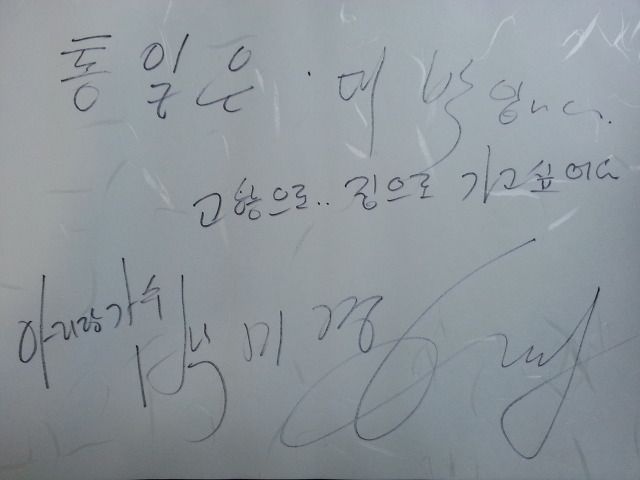 통일은 · 대박입니다.
고향으로.. 집으로 가고싶어요
아리랑가수 박미경